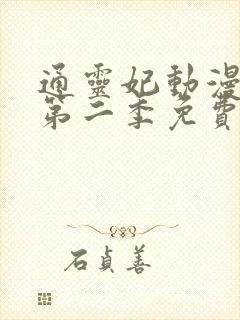 通靈妃動漫
第二季免費
石貞善